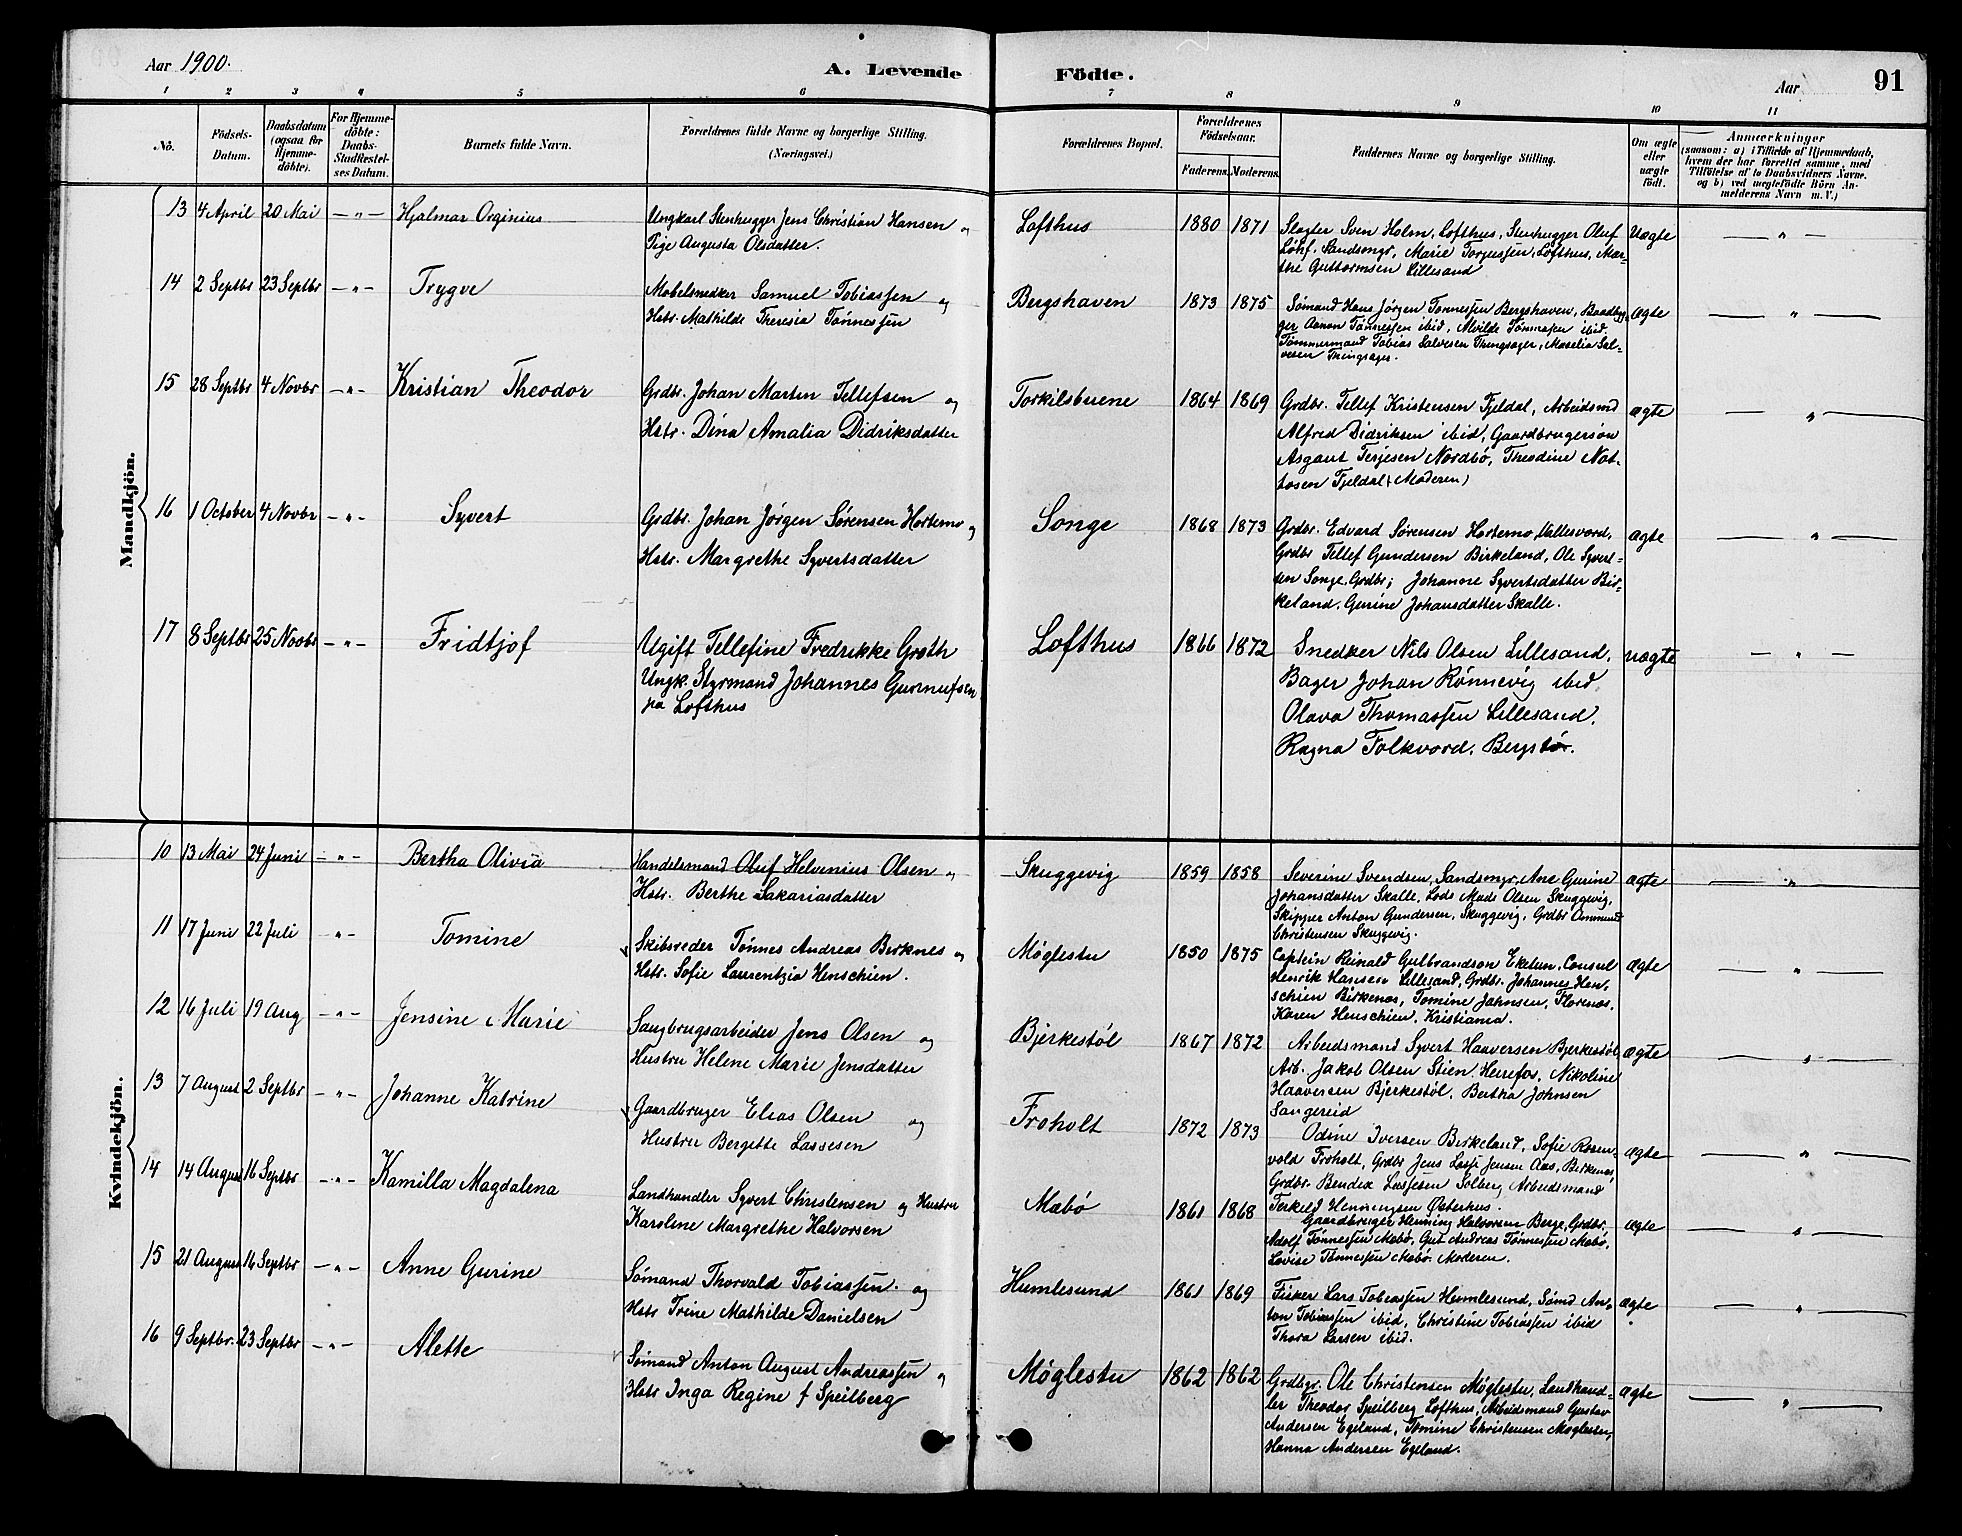 Aar 1900.
A. Levende Födte.
Aar 91
1 2 3 4 5 6 7 8 9 10 11
Nô. Födsels-Datum. Daabsdatum (ogsaa for Hjemme-döbte). For Hjemme-döbte: Daabs-Stadfæstel-ses Datum. Barnets fulde Navn. Forældrenes fulde Navne og borgerlige Stilling. (Næringsvei.) Forældrenes Bopæl. Forældrenes Födselsaar. Faderens. Moderens. Faddernes Navne og borgerlige Stilling. Om ægte eller uægte födt. Anmærkninger (saasom: a) i Tilfælde af Hjemmedaab, hvem der har forrettet samme, med Tilföielse af to Daabsvidners Navne. og b) ved uægtefödte Börn Anmelderens Navn m. V.)
Mandkjön.
13 4 April 20 Mai — " — Hjalmar Orginius Ungkarl Stenhugger Jens Christian Hansen og Lofthus 1880 1871 Slagter Sven Holm, Lofthus, Stenhugger Oluf Uægte — " —
Pige Augusta Olsdatter. Sandsmyr, Marie Torjussen, Lofthus, Mar-
the Guttormsen Lillesand
14 2 Septbr 23 Septbr — " — Trygve Møbelsnedker Samuel Tobiassen og Bergshaven 1873 1875 Sømand Hans Jørgen Tønnessen Bergshaven, Baadbyg- ægte — " —
Hstr. Mathilde Theresia Tønnessen ger Aanon Tønnessen ibid, Alvilde Tønnessen ibid.
Tømmermand Tobias Salvesen Thingsager, Maselia Sal-
vesen Thingsager.
15 28 Septbr 4 Novbr — " — Kristian Theodor Grdbr. Johan Martin Tellefsen og Torkilsbuene 1864 1869 Grdbr. Tellef Kristensen Fjeldal, Arbeidsmd ægte — " —
Hstr. Dina Amalia Didriksdatter Alfred Didriksen ibid, Gaardbrugersøn
Asgaut Terjesen Nordbø, Theodine Not-
tosen Fjeldal (Moderen)
16 1 October 4 Novbr — " — Syvert Grdbr. Johan Jørgen Sørensen Hortemo og Songe 1868 1873 Grdbr. Edvard Sørensen Hortemo, Vallesverd, ægte — " —
Hstr. Margrethe Syvertsdatter Grdbr Tellef Gundersen Birkeland, Ole Syvert-
sen Songe, Grdbr; Johanne Syvertsdatter Bir-
keland, Gurine Johansdatter Skalle.
17 8 Septbr 25 Novbr — " — Fridtjof Ugift Tellefine Fredrikke Groth Lofthus 1866 1872 Snedker Nils Olsen Lillesand, uægte — " —
Ungk. Styrmand Johannes Gunnufsen Bager Johan Rønnevig ibid
pa Lofthus Olava Thomassen Lillesand,
Ragna Folkvord, Bergstø.
Kvindekjön.
10 13 Mai 24 Juni — " — Bertha Olivia Handelsmand Oluf Helvenius Olsen og Skuggevig 1859 1858 Severine Svendsen, Sandsmyr, Ane Gurine ægte — " —
Hstr. Berthe Sakariasdatter Johansdatter Skalle, Lods Mads Olsen Skuggevig,
Skipper Anton Gundersen, Skuggevig, Grdbr Ommund
Christensen Skuggevig.
11 17 Juni 22 Juli — " — Tomine Skibsreder Tønnes Andreas Birknes og Møglestu 1850 1875 Captein Reinald Gulbrandson Eketun, Consul ægte — " —
Hstr. Sofie Laurentzia Henschien. Henrik Hansen Lillesand, Grdbr. Johannes Hen-
schien Birkenes, Tomine Jahnsen, Florenæs,
Karen Henschien, Kristiania.
12 16 Juli 19 Aug — " — Jensine Marie Saugbrugsarbeider Jens Olsen og Bjerkestøl 1867 1872 Arbeidsmand Syvert Haaversen Bjerkestøl ægte — " —
Hustru Helene Marie Jensdatter Arb. Jakob Olsen Stien, Herefos, Nikoline
Haaversen Bjerkestøl, Bertha Johnsen
Sangereid
13 7 August 2 Septbr — " — Johanne Katrine Gaardbruger Elias Olsen og Froholt 1872 1873 Odine Iversen Birkeland, Sofie Rosen- ægte — " —
Hustru Bergitte Lassesen vold Froholt, Grdbr Jens Lasse Jensen Aas, Birkenes,
Grdbr. Bendix Lassesen Solberg, Arbeidsmand
Terkild Henningsen Østerhus.
14 14 August 16 Septbr — " — Kamilla Magdalena Landhandler Syvert Christensen og Hustru Mæbø 1861 1868 Gaardbruger Henning Halvorsen Berge, Grdbr. ægte — " —
Karoline Margrethe Halvorsen Adolf Tønnessen Mæbø, Gut Andreas Tønnessen Mæbø,
Lovise Tønnessen Mæbø. Moderen.
15 21 August 16 Septbr — " — Anne Gurine Sømand Thorvald Tobiassen og Humlesund 1861 1869 Fisker Lars Tobiassen Humlesund, Sømd An- ægte — " —
Hstr Trine Mathilde Danielsen ton Tobiassen ibid, Christine Tobiassen ibid
Thora Larsen ibid.
16 9 Septbr. 23 Septbr — " — Alette Sømand Anton August Andreassen og Møglestu 1862 1862 Grdbgr. Ole Christensen Møglestu, Landhand- ægte — " —
Hstr Inga Regine f Speilberg ler Theodor Speilberg Lofthus, Arbeidsmand Gustav
Andersen Egeland, Tomine Christensen Møglestu,
Hanna Andersen Egeland.